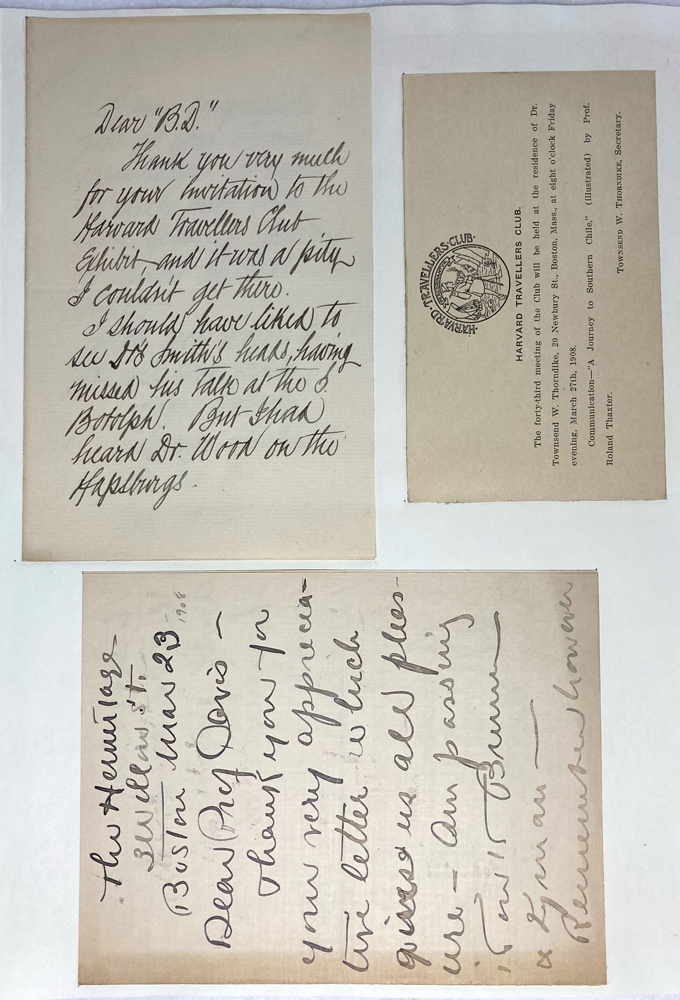 Dear "B.D."
Thank you very much
for your invitation to the
Harvard Travellers Club
Exhibit, and it was a pity
I couldn't get there.
I should have liked to
see Dr. Smith's heads, having
missed his talk at the S.
Botolph. But I had
heard Dr. Wood on the
Hapsburgs.
·HARVARD·TRAVELLERS·CLUB·
HARVARD TRAVELLERS CLUB.
The forty-third meeting of the Club will be held at the residence of Dr.
Townsend W. Thorndike, 20 Newbury St., Boston, Mass., at eight o'clock Friday
evening, March 27th, 1908.
Communication—"A Journey to Southern Chile," (illustrated) by Prof.
Roland Thaxter.
TOWNSEND W. THORNDIKE, Secretary.
The Hermitage
3 Willow St.
Boston Mar 23
1908
Dear Prof Davis —
Thank you for
your very apprecia-
tive letter which
gives us all pleas-
ure — Am passing
it on to Brown
& Lyman —
Remember however